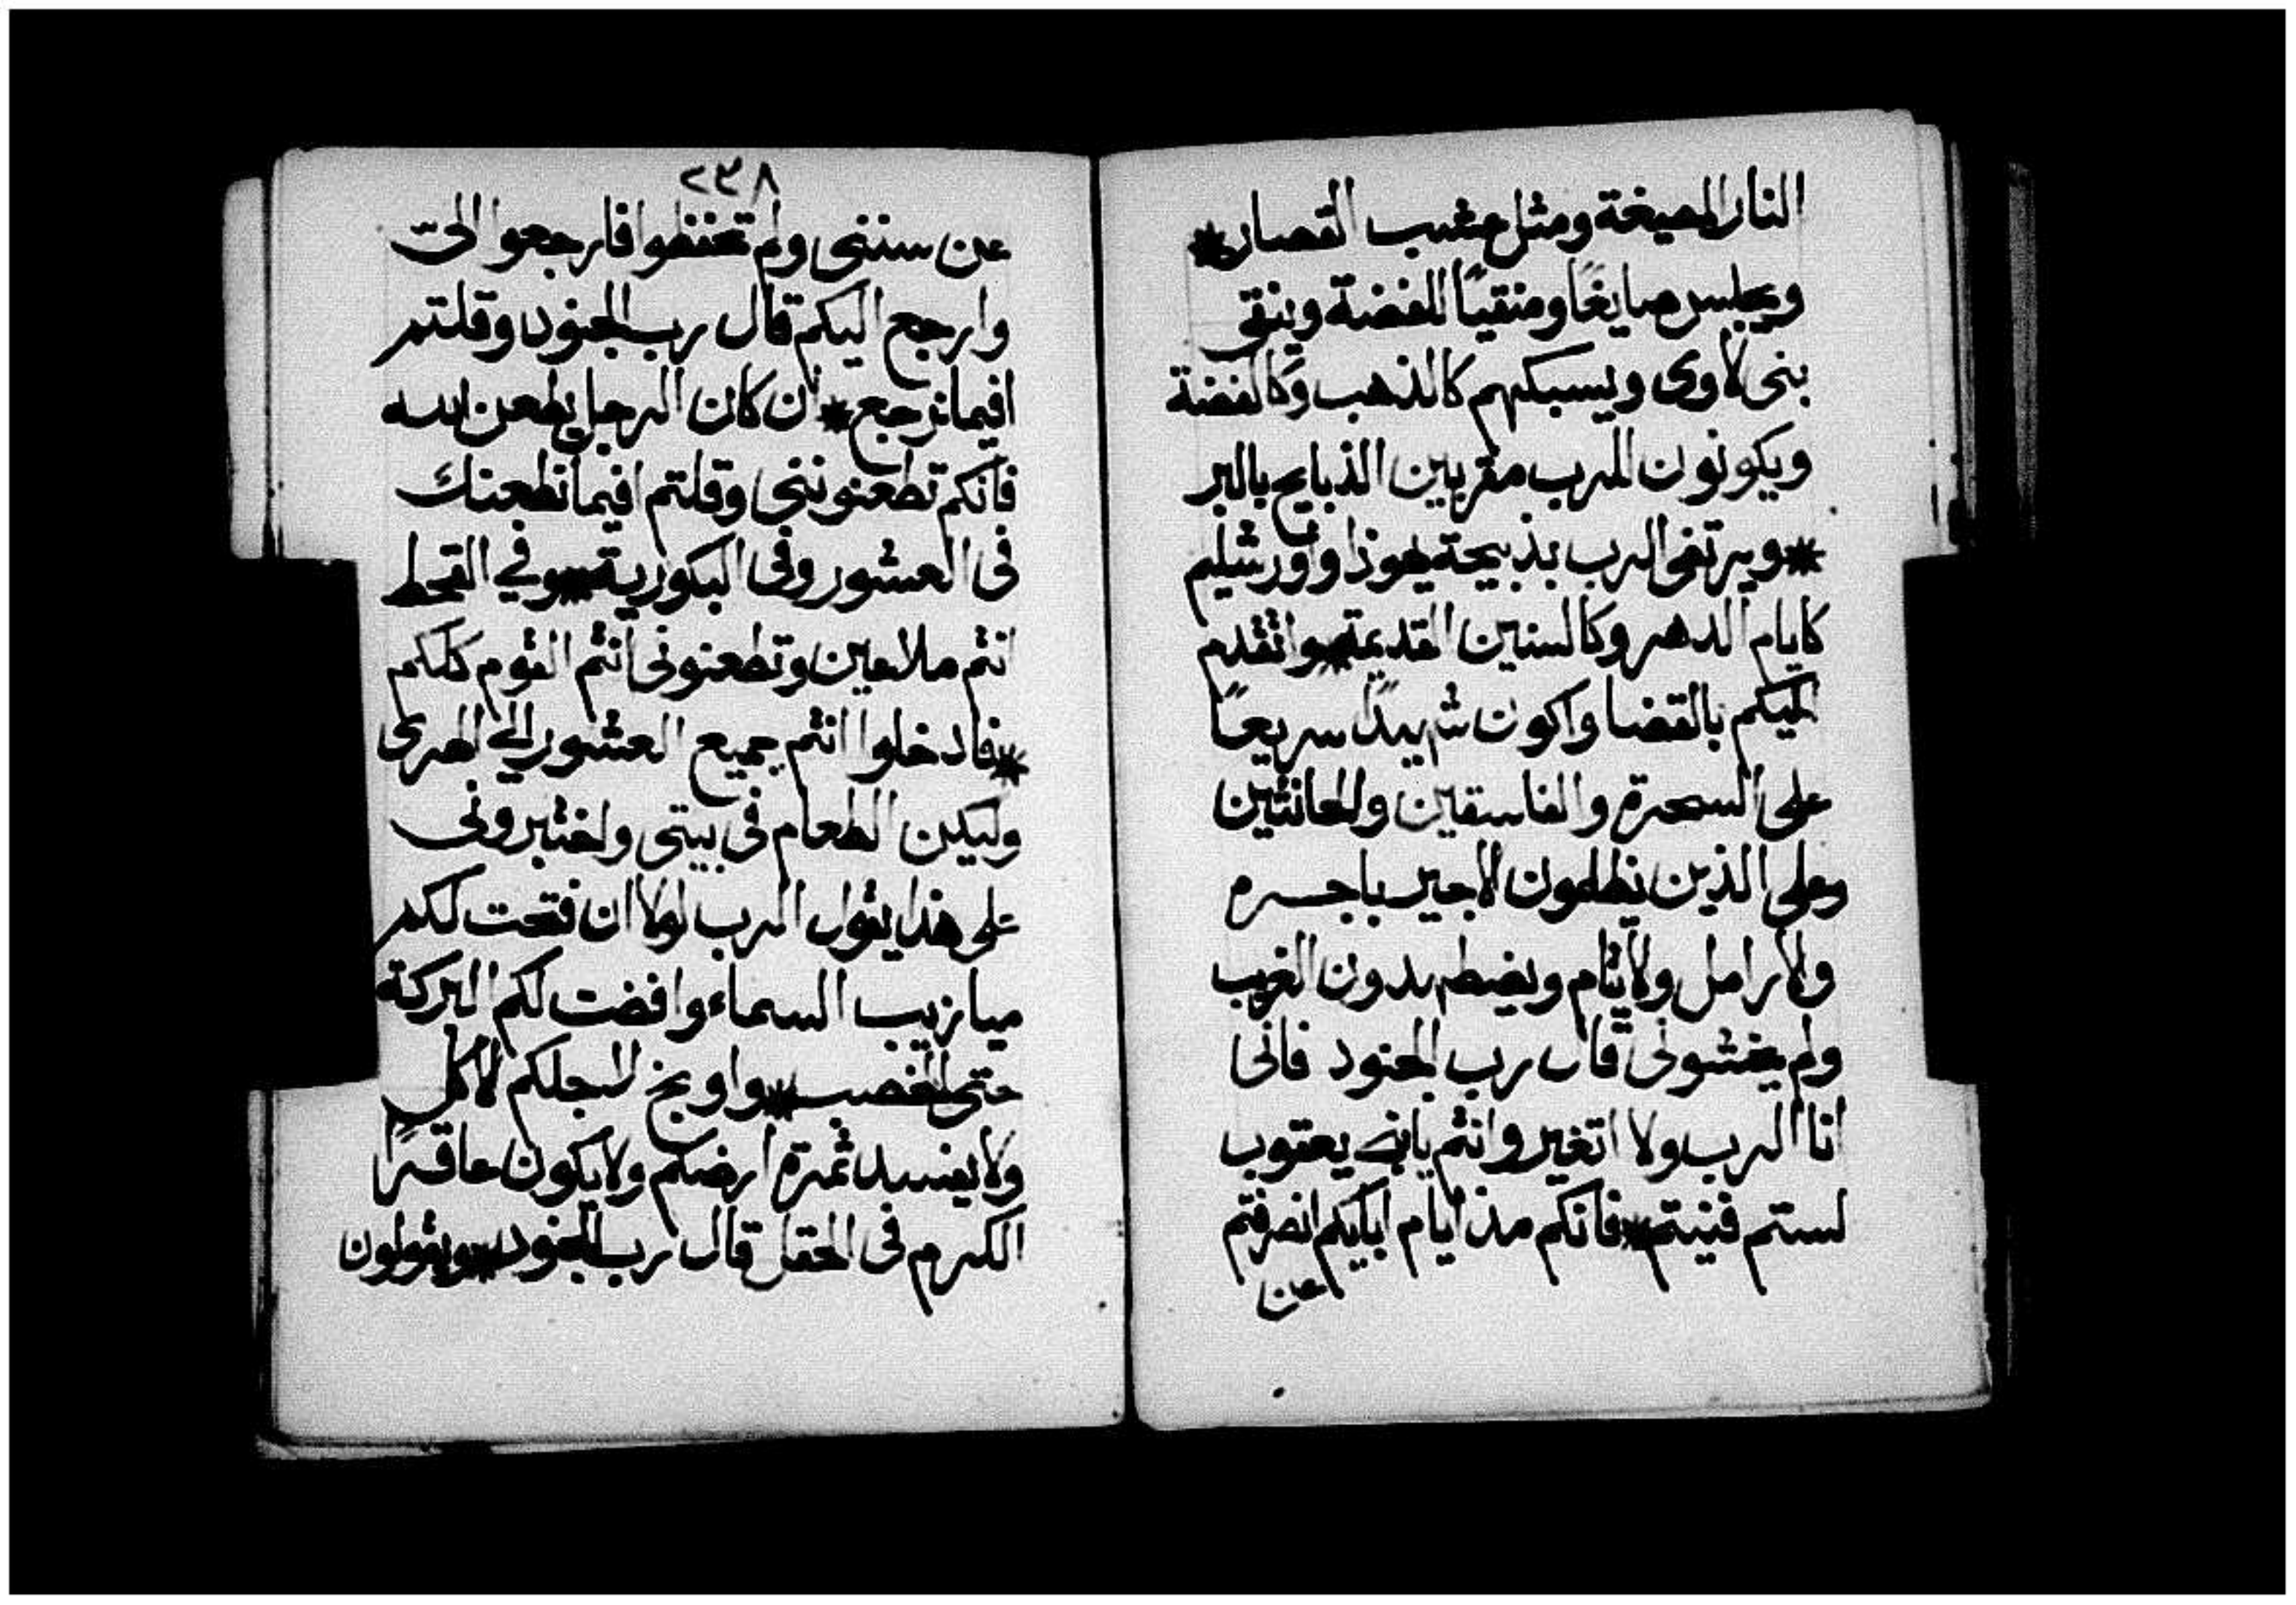 النار المصيغة ومثل عشب القصار *
ويجلس صايغًا ومنقيًا للفضة وينقى
بنى لاوى ويسبكهم كالذهب وكالفضة
ويكونون للرب مقربين الذبايح بالبر
* ويرتضى الرب بذبيحة يهوذا وأورشليم
كايام الدهر وكالسنين القديمة * واتقدم
اليكم بالقضا واكون شهيدًا سريعًا
على السحرة والفاسقين والحانثين
وعلى الذين يظلمون الاجير باجره
والارامل والايتام ويضطهدون الغريب
ولم يخشونى قال رب الجنود فانى
انا الرب ولا اتغير وانتم يابنى يعقوب
لستم فنيتم * فانكم مذ ايام ابايكم انصرفتم
عن
٢٣٨
عن سننى ولم تحفظوا فارجعوا الىّ
وارجع اليكم قال رب الجنود وقلتم
افيما نرجع * ان كان الرجل يطعن الله
فانكم تطعنوننى وقلتم افيما نطعنك
فى العشور وفى البكورية * وفي القحط
انتم ملاعين وتطعنونى انتم القوم كلكم
* فادخلوا انتم جميع العشور الى الهرى
وليكن الطعام فى بيتى واختبرونى
على هذا يقول الرب لولا ان فتحت لكم
ميازيب السماء وافضت لكم البركة
حتى الخصب * واوبخ لاجلكم لاكلٍ
ولا يفسد ثمرة ارضكم ولا يكون عاقرًا
الكرم فى الحقل قال رب الجنود * ويقولون